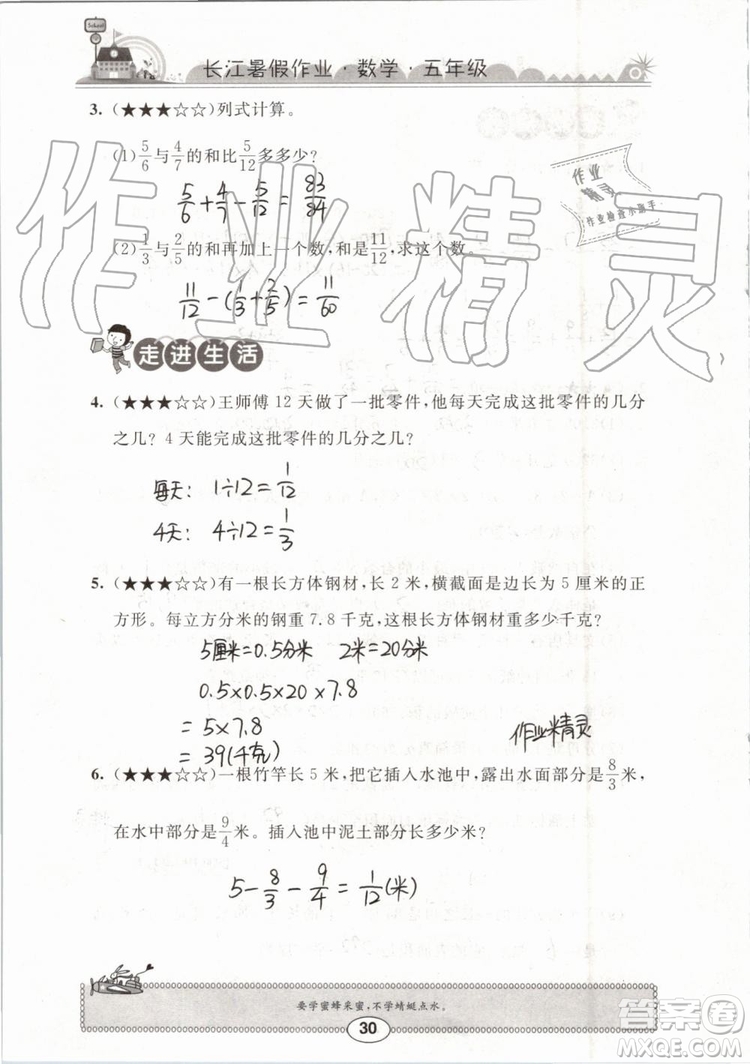 School
长江暑假作业·数学·五年级
3. (★★★☆☆)列式计算。
(1) 5/6 与 4/7 的和比 5/12 多多少?
5/6+4/7-5/12=83/84
作业
精灵
作业检查小帮手
(2) 1/3 与 2/5 的和再加上一个数,和是 11/12,求这个数。
11/12-(1/3+2/5)=11/60
作业精灵
走进生活
4. (★★★☆☆)王师傅 12 天做了一批零件,他每天完成这批零件的几分
之几? 4 天能完成这批零件的几分之几?
每天: 1÷12=1/12
4天: 4÷12=1/3
5. (★★★☆☆)有一根长方体钢材,长 2 米,横截面是边长为 5 厘米的正
方形。每立方分米的钢重 7.8 千克,这根长方体钢材重多少千克?
5厘米=0.5分米 2米=20分米
0.5×0.5×20×7.8
=5×7.8
=39(千克)
作业精灵
6. (★★★☆☆)一根竹竿长 5 米,把它插入水池中,露出水面部分是 8/3 米,
在水中部分是 9/4 米。插入池中泥土部分长多少米?
5-8/3-9/4=1/12(米)
要学蜜蜂采蜜,不学蜻蜓点水。
30
答案圈
MXQE.COM